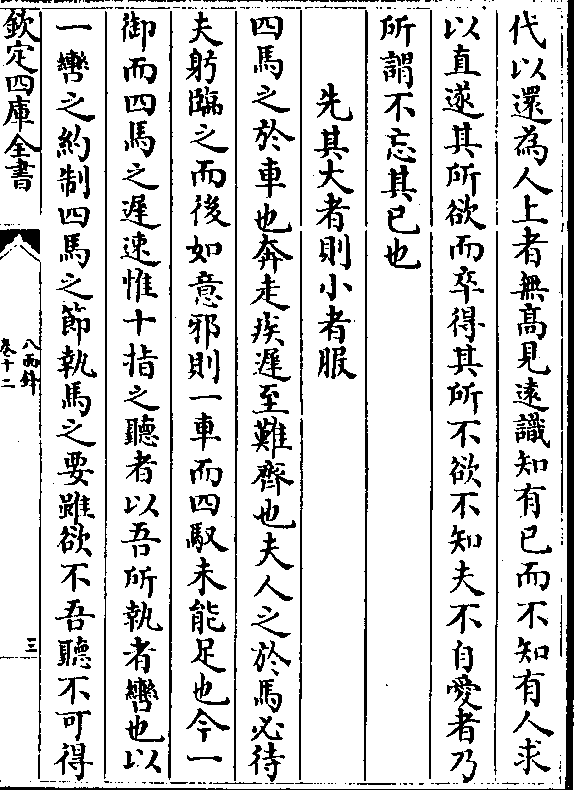 代以還為人上者無高見遠識知有已而不知有人求
以直遂其所欲而卒得其所不欲不知夫不自愛者乃
所謂不忘其已也
先其大者則小者服
四馬之於車也奔走疾遲至難齊也夫人之於馬必待
夫躬臨之而後如意邪則一車而四馭未能足也今一
御而四馬之遲速惟十指之聽者以吾所執者轡也以
一轡之約制四馬之節執馬之要雖欲不吾聽不可得
欽定四庫全書
八面鋒
卷十二
三